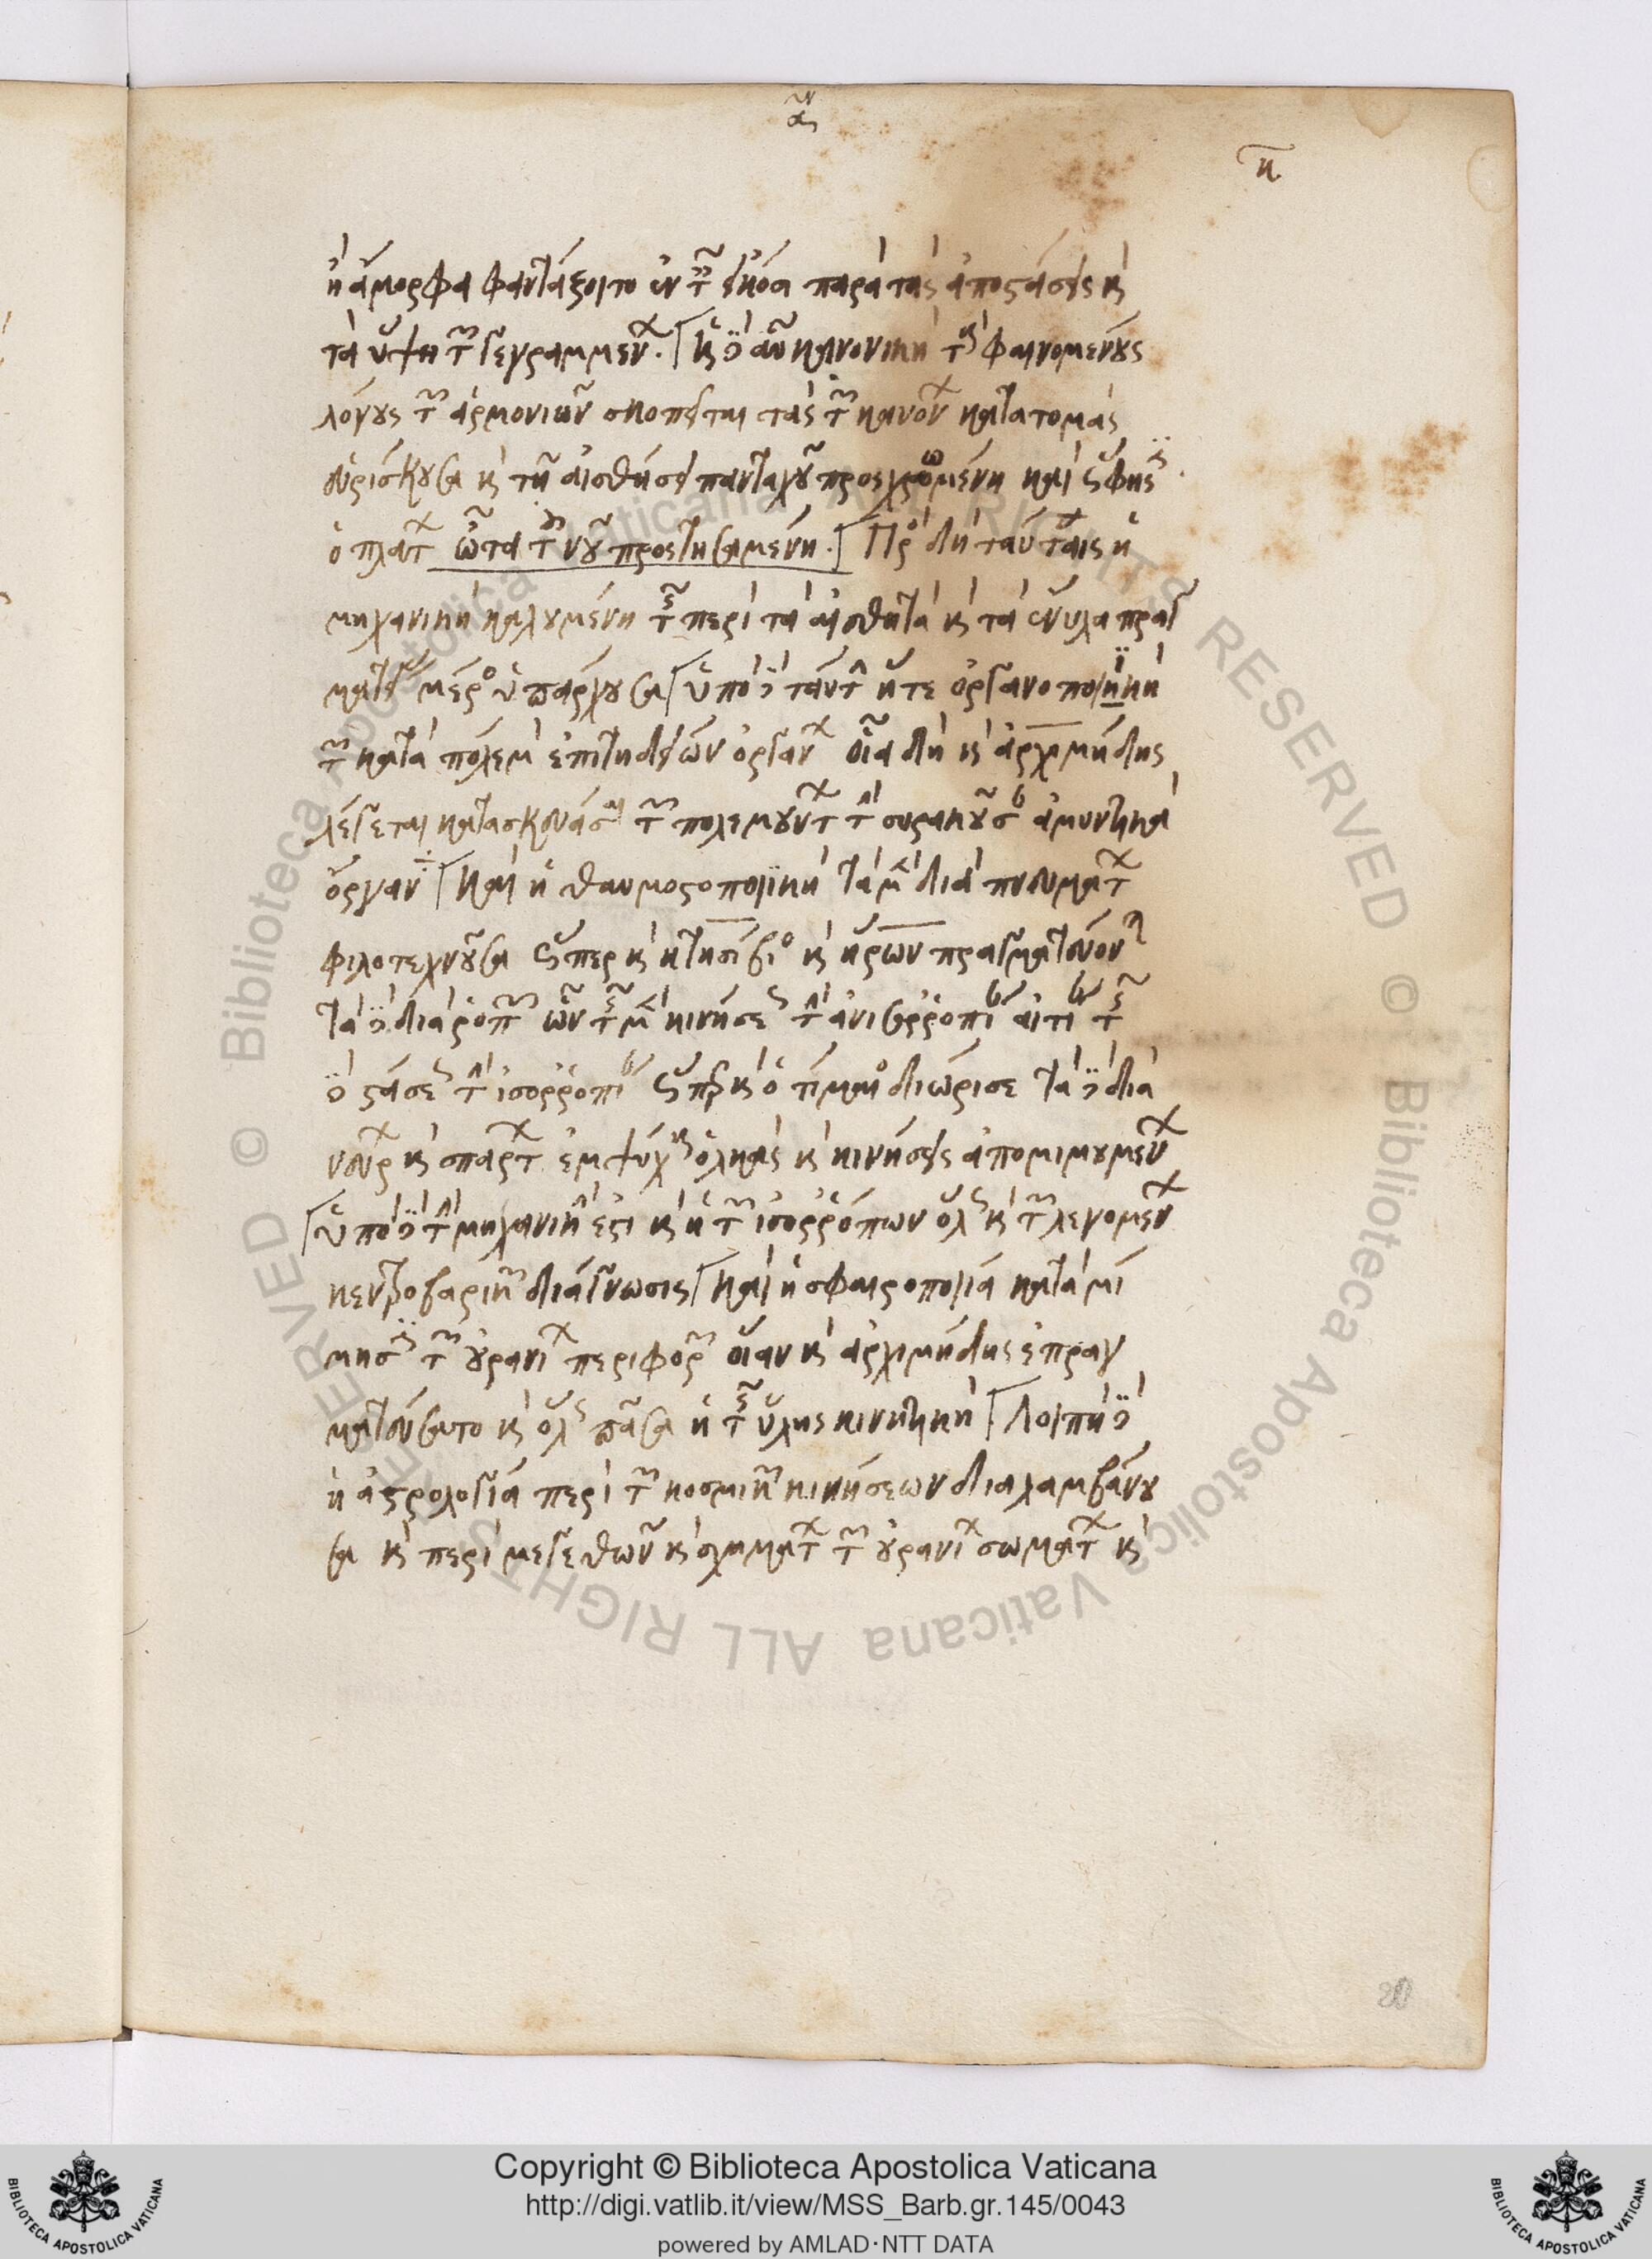 κ
η
ἢ ἄμορφα φαντάζοιτο ἐν τ εἰκόσι παρὰ τὰς ἀποστάσεις κ
τὰ ὕψη τῶν γεγραμμένων. κ δὲ αὖ κανονικὴ τοὺς φαινομένους
λόγους τῶν ἁρμονιῶν σκοπεῖται τὰς τῶν κανόνων κατατομὰς
εὑρίσκουσα κ τῇ αἰσθήσει πανταχοῦ προσχρωμένη καὶ ὥς φησιν
ὁ πλάτων ὦτα τοῦ νοῦ προστησαμένη. Πρὸς δὴ ταύταις ἡ
μηχανικὴ καλουμένη τῆς περὶ τὰ αἰσθητὰ κ τὰ ἔνυλα πραγ
ματείας μέρος ὑπάρχουσα ὑπὸ δὲ ταύτην ἥτε ὀργανοποιϊκὴ
τῶν κατὰ πόλεμον ἐπιτηδείων ὀργάνων οἷα δὴ κ ἀρχιμήδης
λέγεται κατασκευάσαι τῶν πολεμούντων τὴν συρακοῦσαν ἀμυντικὰ
ὄργανα καὶ ἡ θαυμοστοποιϊκὴ τὰ μὲν διὰ πνευμάτων
φιλοτεχνοῦσα ὥσπερ κ κτησίβιος κ ἥρων πραγματεύονται
τὰ δὲ διὰ ῥοπῶν ὧν τῆς μὲν κινήσεως τὴν ἀνισορροπίαν αἰτι τῆς
δὲ στάσεως τὴν ἰσορροπίαν ὥσπερ κ ὁ τίμαιος διώρισε τὰ δὲ διὰ
νεύρων κ σπάρτων ἐμψύχους ὁλκὰς κ κινήσεις ἀπομιμουμένων
ὑπὸ δὲ τὴν μηχανικήν ἐστι κ ἡ τῶν ἰσορρόπων ὅλως κ τῶν λεγομένων
κεντροβαρικῶν διάγνωσις καὶ ἡ σφαιροποιία κατὰ μί
μησιν τῶν οὐρανίων περιφορῶν οἵαν κ ἀρχιμήδης ἐπραγ
ματεύσατο κ ὅλως πᾶσα ἡ τῆς ὕλης κινητικὴ Λοιπὴ δὲ
ἡ ἀστρολογία περὶ τῶν κοσμικῶν κινήσεων διαλαμβάνου
σα κ περὶ μεγεθῶν κ σχημάτων τῶν οὐρανίων σωμάτων κ
20
Copyright © Biblioteca Apostolica Vaticana
http://digi.vatlib.it/view/MSS_Barb.gr.145/0043
powered by AMLAD·NTT DATA